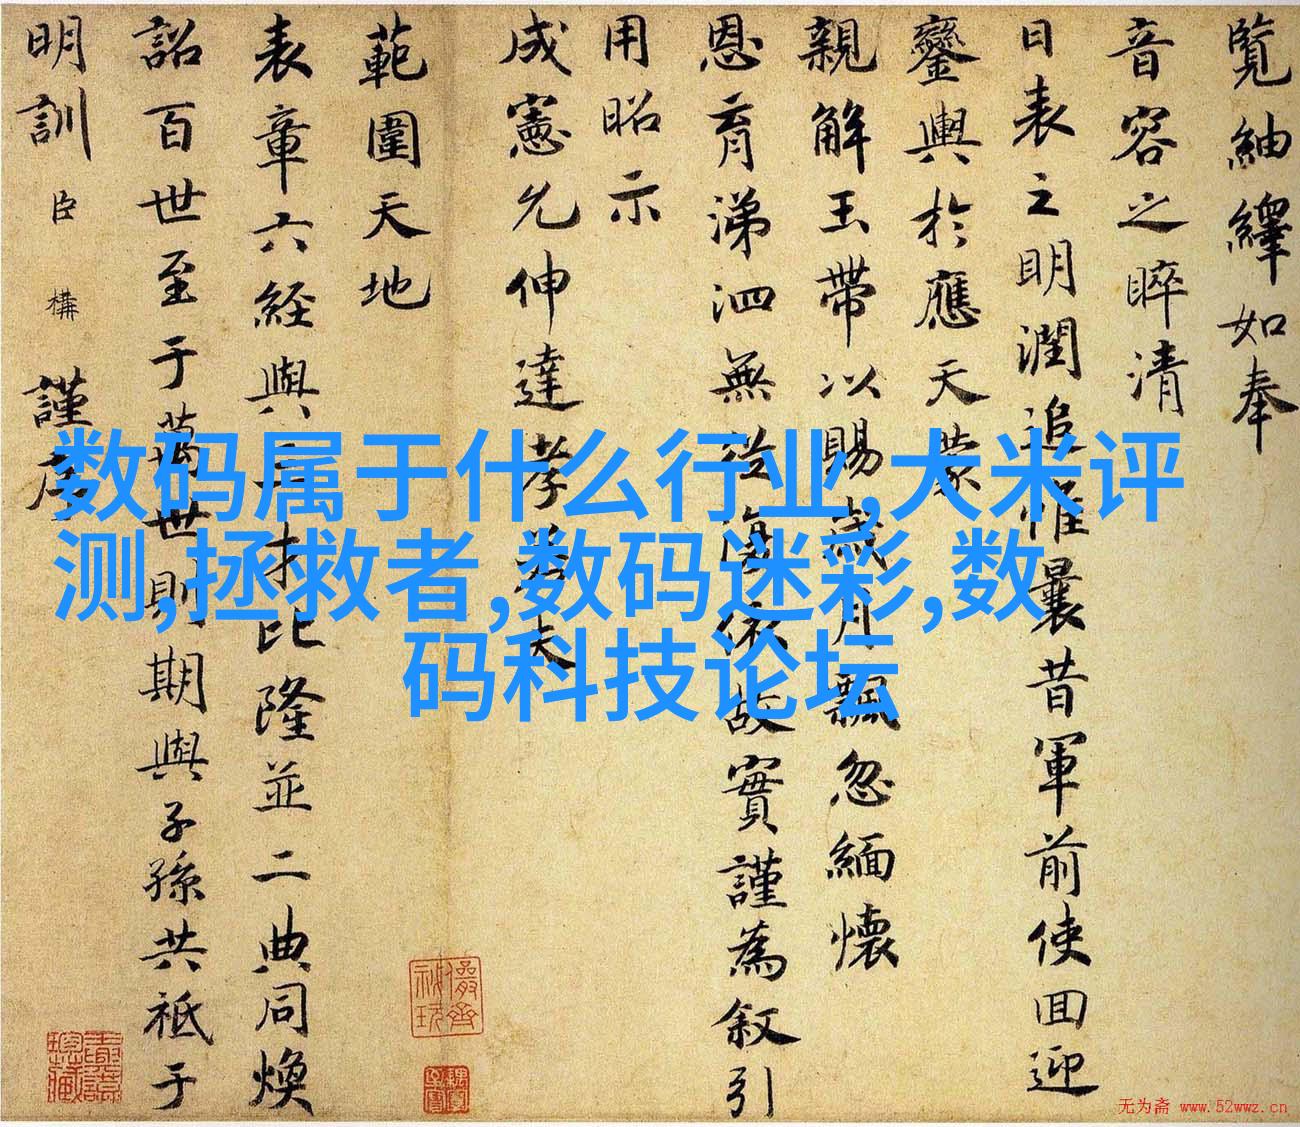 覽紬繹如奉
音容之睟清
日表之明潤追惟曩昔軍前使回迎
鑾輿於應天蒙
親解玉帶以賜歲月飄忽緬懷
恩育涕泗無從海依故實謹為叙引
用昭示
成憲允伸達孝若夫
範圍天地
表章六經與三才比隆並二典同煥
詔百世至于萬世則期與子孫共祗于
明訓臣構謹序
数码属于什么行业,大米评
测,拯救者,数码迷彩,数
码科技论坛
无为斋 www.52wwz.cn